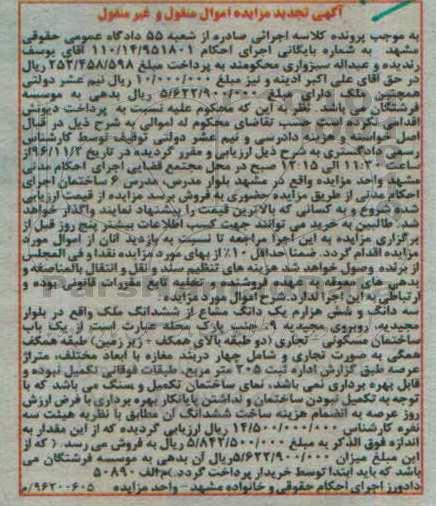 آگهی تجدید مزایده اموال منقول و غیر منقول
به موجب پرونده کلاسه اجرائی صادره از شعبه 55 دادگاه عمومی حقوقی
مشهد به شماره بایگانی اجرای احکام 110/14/951801 آقای یوسف
رندیده و عبداله سبزواری محکومند به پرداخت مبلغ 253/458/598 ریال
در حق آقای علی اکبر آدینه و نیز مبلغ 10/000/000 ریال نیم عشر دولتی
همچنین ملک دارای مبلغ 5/622/900/000 ریال بدهی به موسسه
فرشتگان می باشد. نظر به این که محکوم علیه نسبت به پرداخت دیونش
اقدامی نکرده است حسب تقاضای محکوم له اموالی به شرح ذیل در قبال
اصل خواسته و هزینه دادرسی و نیم عشر دولتی توقیف توسط کارشناس
رسمی دادگستری به شرح ذیل ارزیابی و مقرر گردیده در تاریخ 96/11/3 از
ساعت 11:30 الی 12:15 صبح در محل مجتمع قضایی اجرای احکام مدنی
مشهد واحد مزایده واقع در مشهد بلوار مدرس، مدرس 6 ساختمان اجرای
احکام مدنی از طریق مزایده حضوری به فروش برسد مزایده از قیمت ارزیابی
شده شروع و به کسانی که بالاترین قیمت را پیشنهاد نمایند واگذار خواهد
شد. طالبین به خرید می توانند جهت کسب اطلاعات بیشتر پنج روز قبل از
برگزاری مزایده به این اجرا مراجعه تا نسبت به بازدید آنان از اموال مورد
مزایده اقدام گردد. ضمنا حداقل 10% از بهای مورد مزایده نقدا و فی المجلس
از برنده وصول خواهد شد هزینه های تنظیم سند و نقل و انتقال بالمناصفه و
بدهی های معوقه به عهده فروشنده و تخلیه تابع مقررات قانونی بوده و
ارتباطی به این اجرا ندارد. شرح اموال مورد مزایده:
سه دانگ و شش هزارم یک دانگ مشاع از ششدانگ ملک واقع در بلوار
مجیدیه، روبروی مجیدیه 9- جنب پارک محله عبارت است از یک باب
ساختمان مسکونی - تجاری (دو طبقه بالای همکف - زیر زمین) طبقه همکف
همگی به صورت تجاری و شامل چهار دربند مغازه با ابعاد مختلف، متراژ
عرصه طبق گزارش اداره ثبت 205 متر مربع، طبقات فوقانی تکمیل نبوده و
قابل بهره برداری نمی باشد، نمای ساختمان تکمیل و سنگ می باشد که با
توجه به تکمیل نبودن ساختمان و نداشتن پایانکار بهره برداری با فرض ارزش
روز عرصه به انضمام هزینه ساخت ششدانگ آن مطابق با نظریه هیئت سه
نفره کارشناس 14/500/000/000 ریال ارزیابی گردیده که از این مقدار به
اندازه فوق الذکر به مبلغ 5/842/500/000 ریال به فروش می رسد. ( که از
این مبلغ میزان 5/622/900/000 ریال آن بدهی به موسسه فرشتگان می
باشد که باید ابتدا توسط خریدار پرداخت گردد.) م الف 50890
دادورز اجرای احکام حقوقی و خانواده مشهد - واحد مزایده 9620605/م